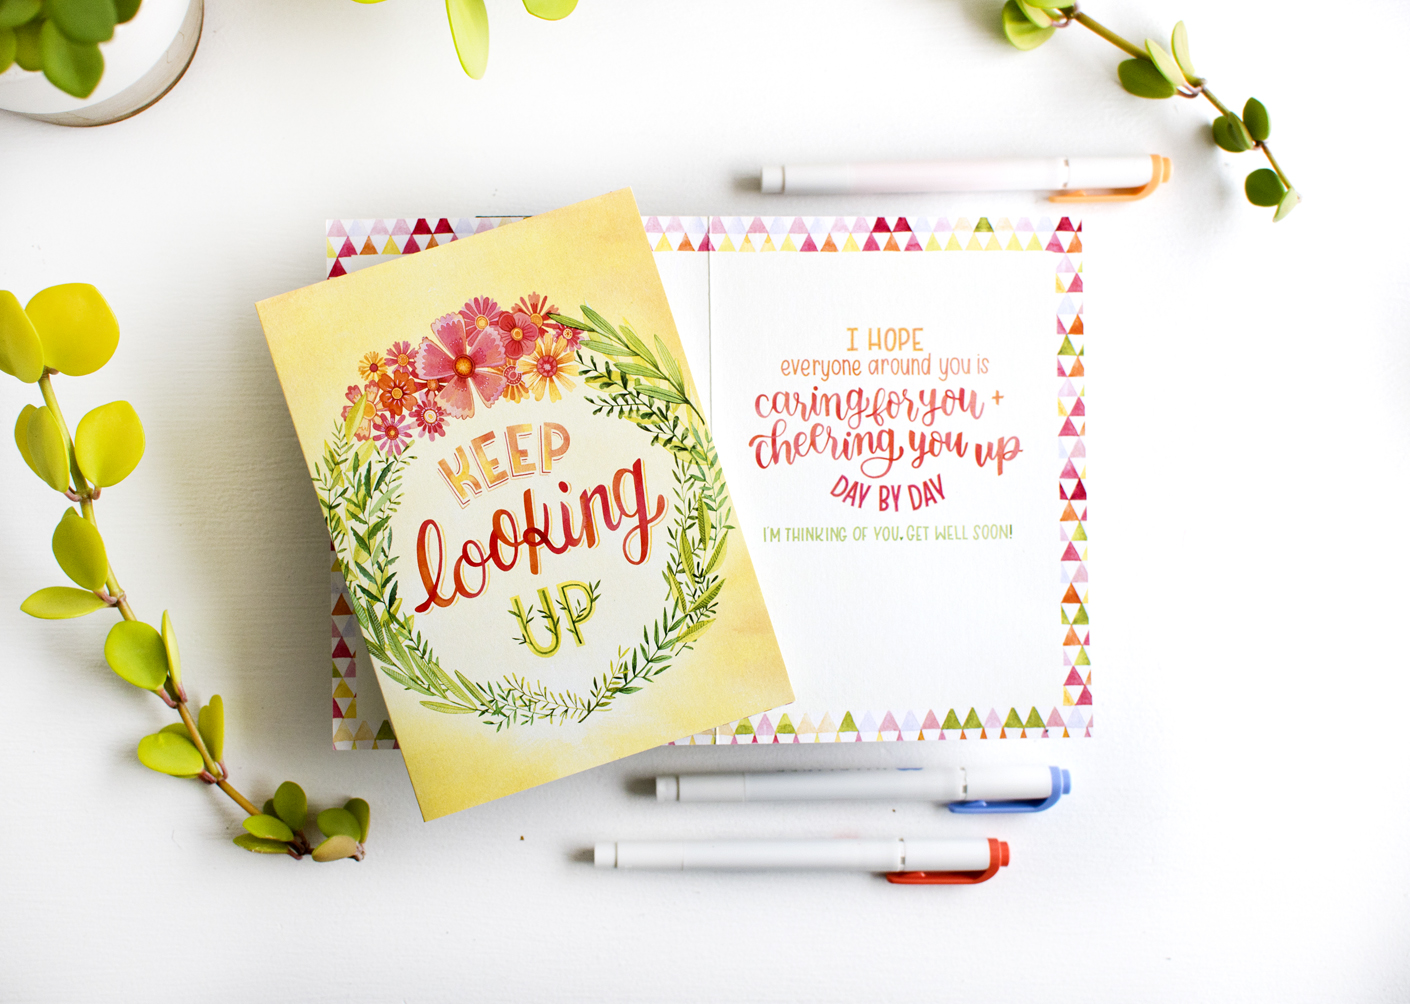 KEEP
looking
UP
I HOPE
everyone around you is
caring for you +
cheering you up
DAY BY DAY
I'M THINKING OF YOU. GET WELL SOON!